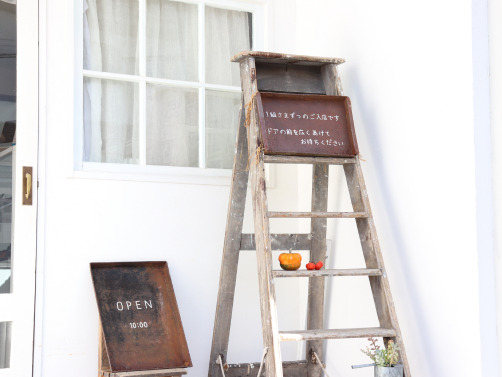 1組さまずつのご入店です
ドアの前を広くあけて
お待ちください
OPEN
10:00